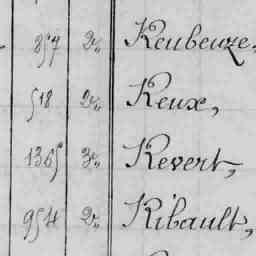 857 2,, Reubeuze,
518 2,, Reux,
1365 3,, Revert,
954 2,, Ribault,